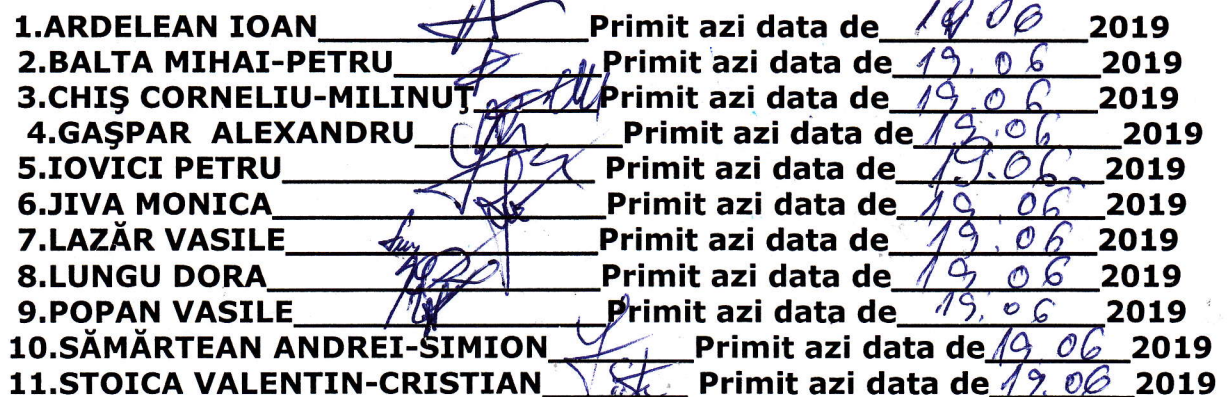 1.ARDELEAN IOAN Primit azi data de 19 06 2019
2.BALTA MIHAI-PETRU Primit azi data de 19.06 2019
3.CHIŞ CORNELIU-MILINUŢ Primit azi data de 19.06 2019
4.GAŞPAR ALEXANDRU Primit azi data de 19.06 2019
5.IOVICI PETRU Primit azi data de 19.06. 2019
6.JIVA MONICA Primit azi data de 19.06 2019
7.LAZĂR VASILE Primit azi data de 19.06 2019
8.LUNGU DORA Primit azi data de 19.06 2019
9.POPAN VASILE Primit azi data de 19.06 2019
10.SĂMĂRTEAN ANDREI-SIMION Primit azi data de 19 06 2019
11.STOICA VALENTIN-CRISTIAN Primit azi data de 19.06 2019